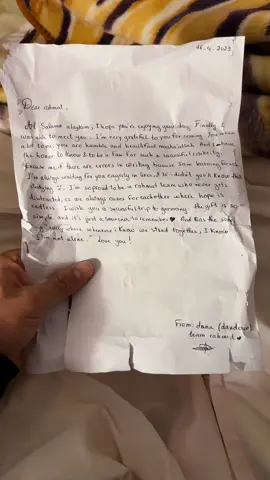 16.4.2023
Dear rahmal,
Al Salamu alaykum, I hope you're enjoying your day. Finally I
was able to meet you. I'm very grateful to you for coming. You mean
a lot to me, you are humble and beautiful masha'allah. And I have
the honor to know and to be a fan for such a successful celebrity.
Excuse me if there are errors in writing because I am learning
I'm always waiting for you eagerly in lives, &
studying I. I'm so proud to be in rahmal team who never gets
distracted, cs we always cares for eachother where hope is
endless. I wish you a successful trip to germany. the gift is so
simple and it's just a souvenir to remember ♥ And as the song
"really where whenever i know we stand together, I know
I'm not alone." Love you!
From: dana
team rahmal ♥